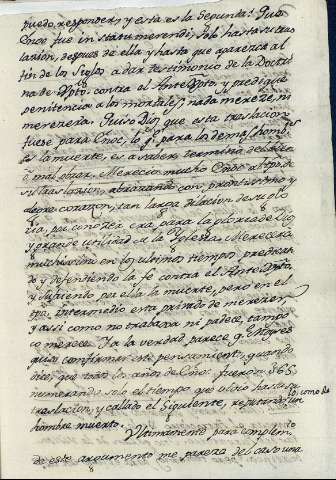 puedo responder, y esta es la segunda: Que
Enoc fue in statu merendi, solo hasta su tras
lazion, despues de ella y hasta que aparezca al
fin de los Siglos a dar testimonio de la Doctri
na de Xpto. contra el AnteXpto, y predique
penitencia a los mortales, nada mereze, ni
merezera. Quiso Dios que esta traslacion
fuese para Enoc, lo q.e para los demas hombr.s
es la muerte, es a saber, termino de bien
ò mal obrar. Merecio mucho Enoc al tpo. de
su traslazion, abrazando con promtissimo y
 corazon, tan larga dilacion de su glo
ria, por conozer era para la gloria de Dios
y grande utilidad de la Iglesia. Merecera
muchissimo en los ultimos tiempos, predican
do y defendiendo la fe contra el AnteXpto,
y sufriendo por ella la muerte, pero en el
tpo. intermedio esta privado de merezer,
y assi como no trabaxa ni padece, tampo
co mereze. Y a la verdad parece q.e Moyses
quiso confirmar este pensamiento, quando
dice, que todos los años de Enoc fueron 365,
numerando solo el tiempo que vivio hasta su
traslacion, y callado el siguiente, reputandolo, como a un
hombre muerto.
Ultimamente para complem.to
de este argumento me pareze del caso una